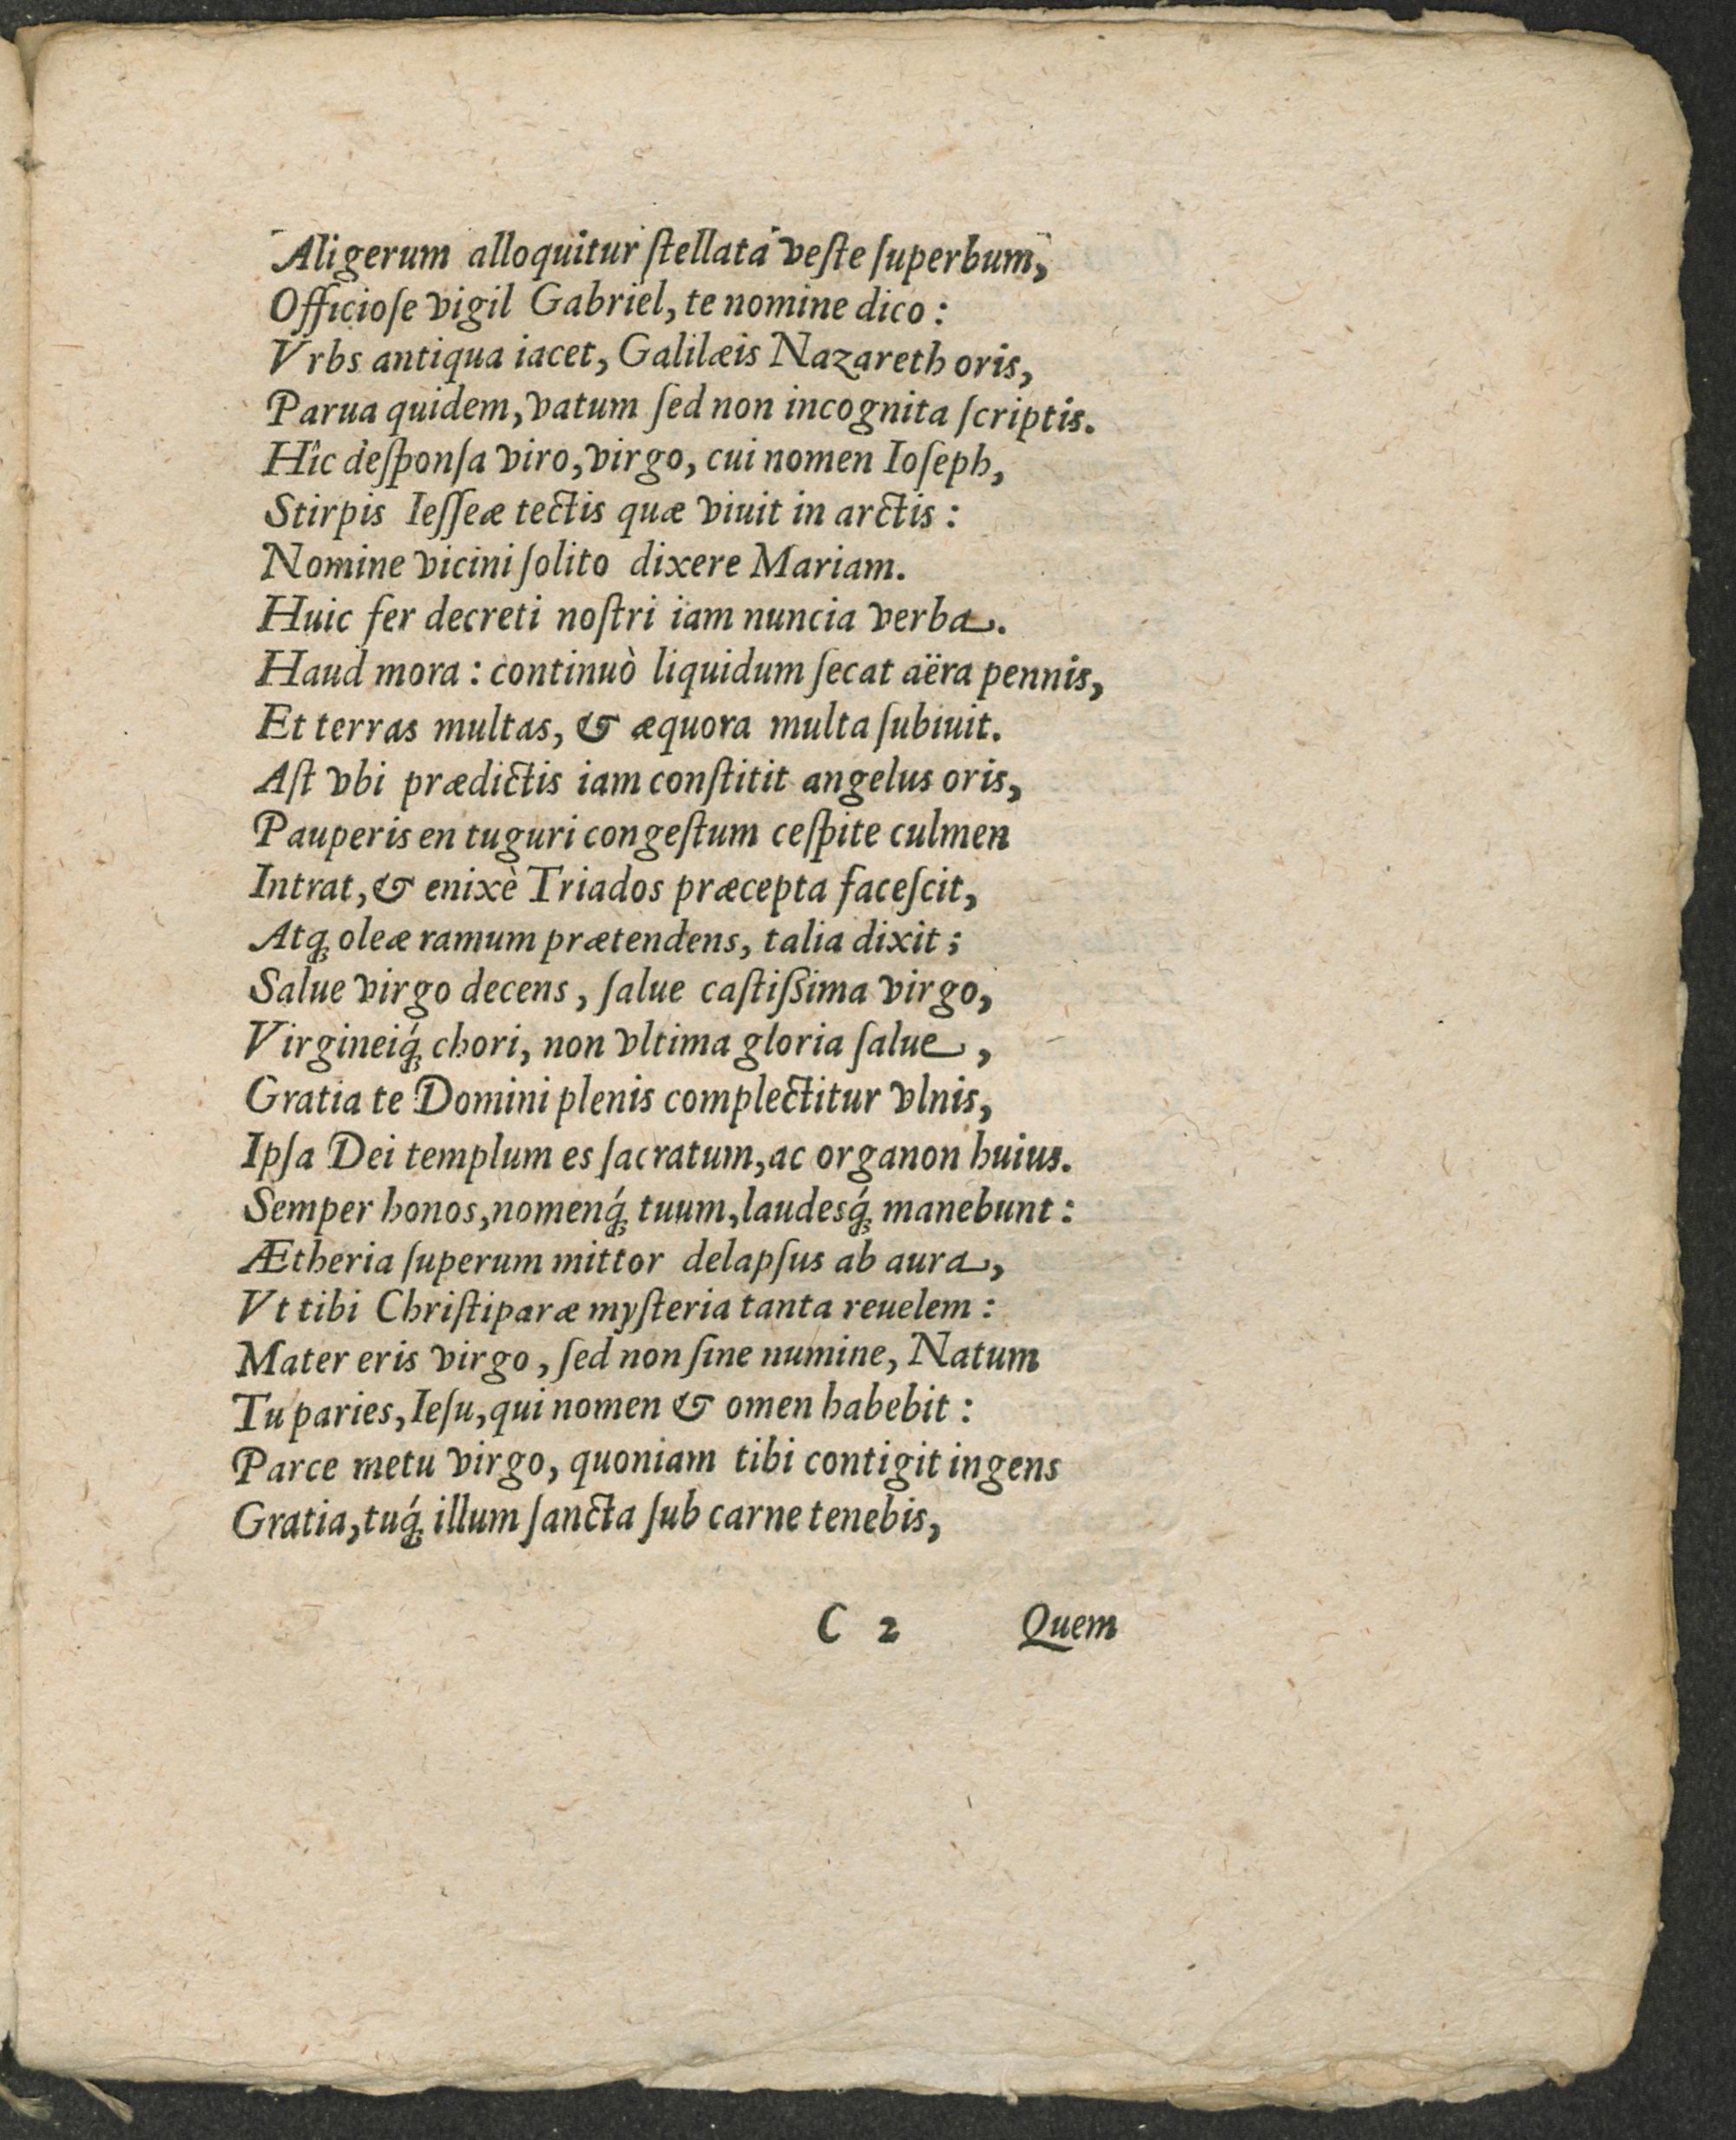 Aligerum alloquitur ſtellata veſte ſuperbum,
Officioſe vigil Gabriel, te nomine dico:
Vrbs antiqua iacet, Galilæis Nazareth oris,
Parua quidem, vatum ſed non incognita ſcriptis.
Hîc deſponſa viro, virgo, cui nomen Ioſeph,
Stirpis Ieſſeæ tectis quæ viuit in arctis:
Nomine vicini ſolito dixere Mariam.
Huic fer decreti noſtri iam nuncia verba.
Haud mora: continuò liquidum ſecat aëra pennis,
Et terras multas, & æquora multa ſubiuit.
Aſt vbi prædictis iam conſtitit angelus oris,
Pauperis en tuguri congeſtum ceſpite culmen
Intrat, & enixè Triados præcepta faceſcit,
Atq́; oleæ ramum prætendens, talia dixit;
Salue virgo decens, ſalue caſtiſsima virgo,
Virgineiq́; chori, non vltima gloria ſalue,
Gratia te Domini plenis complectitur vlnis,
Ipſa Dei templum es ſacratum, ac organon huius.
Semper honos, nomenq́; tuum, laudesq́; manebunt:
Ætheria ſuperum mittor delapſus ab aura,
Vt tibi Chriſtiparæ myſteria tanta reuelem:
Mater eris virgo, ſed non ſine numine, Natum
Tu paries, Ieſu, qui nomen & omen habebit:
Parce metu virgo, quoniam tibi contigit ingens
Gratia, tuq́; illum ſancta ſub carne tenebis,
C 2 Quem